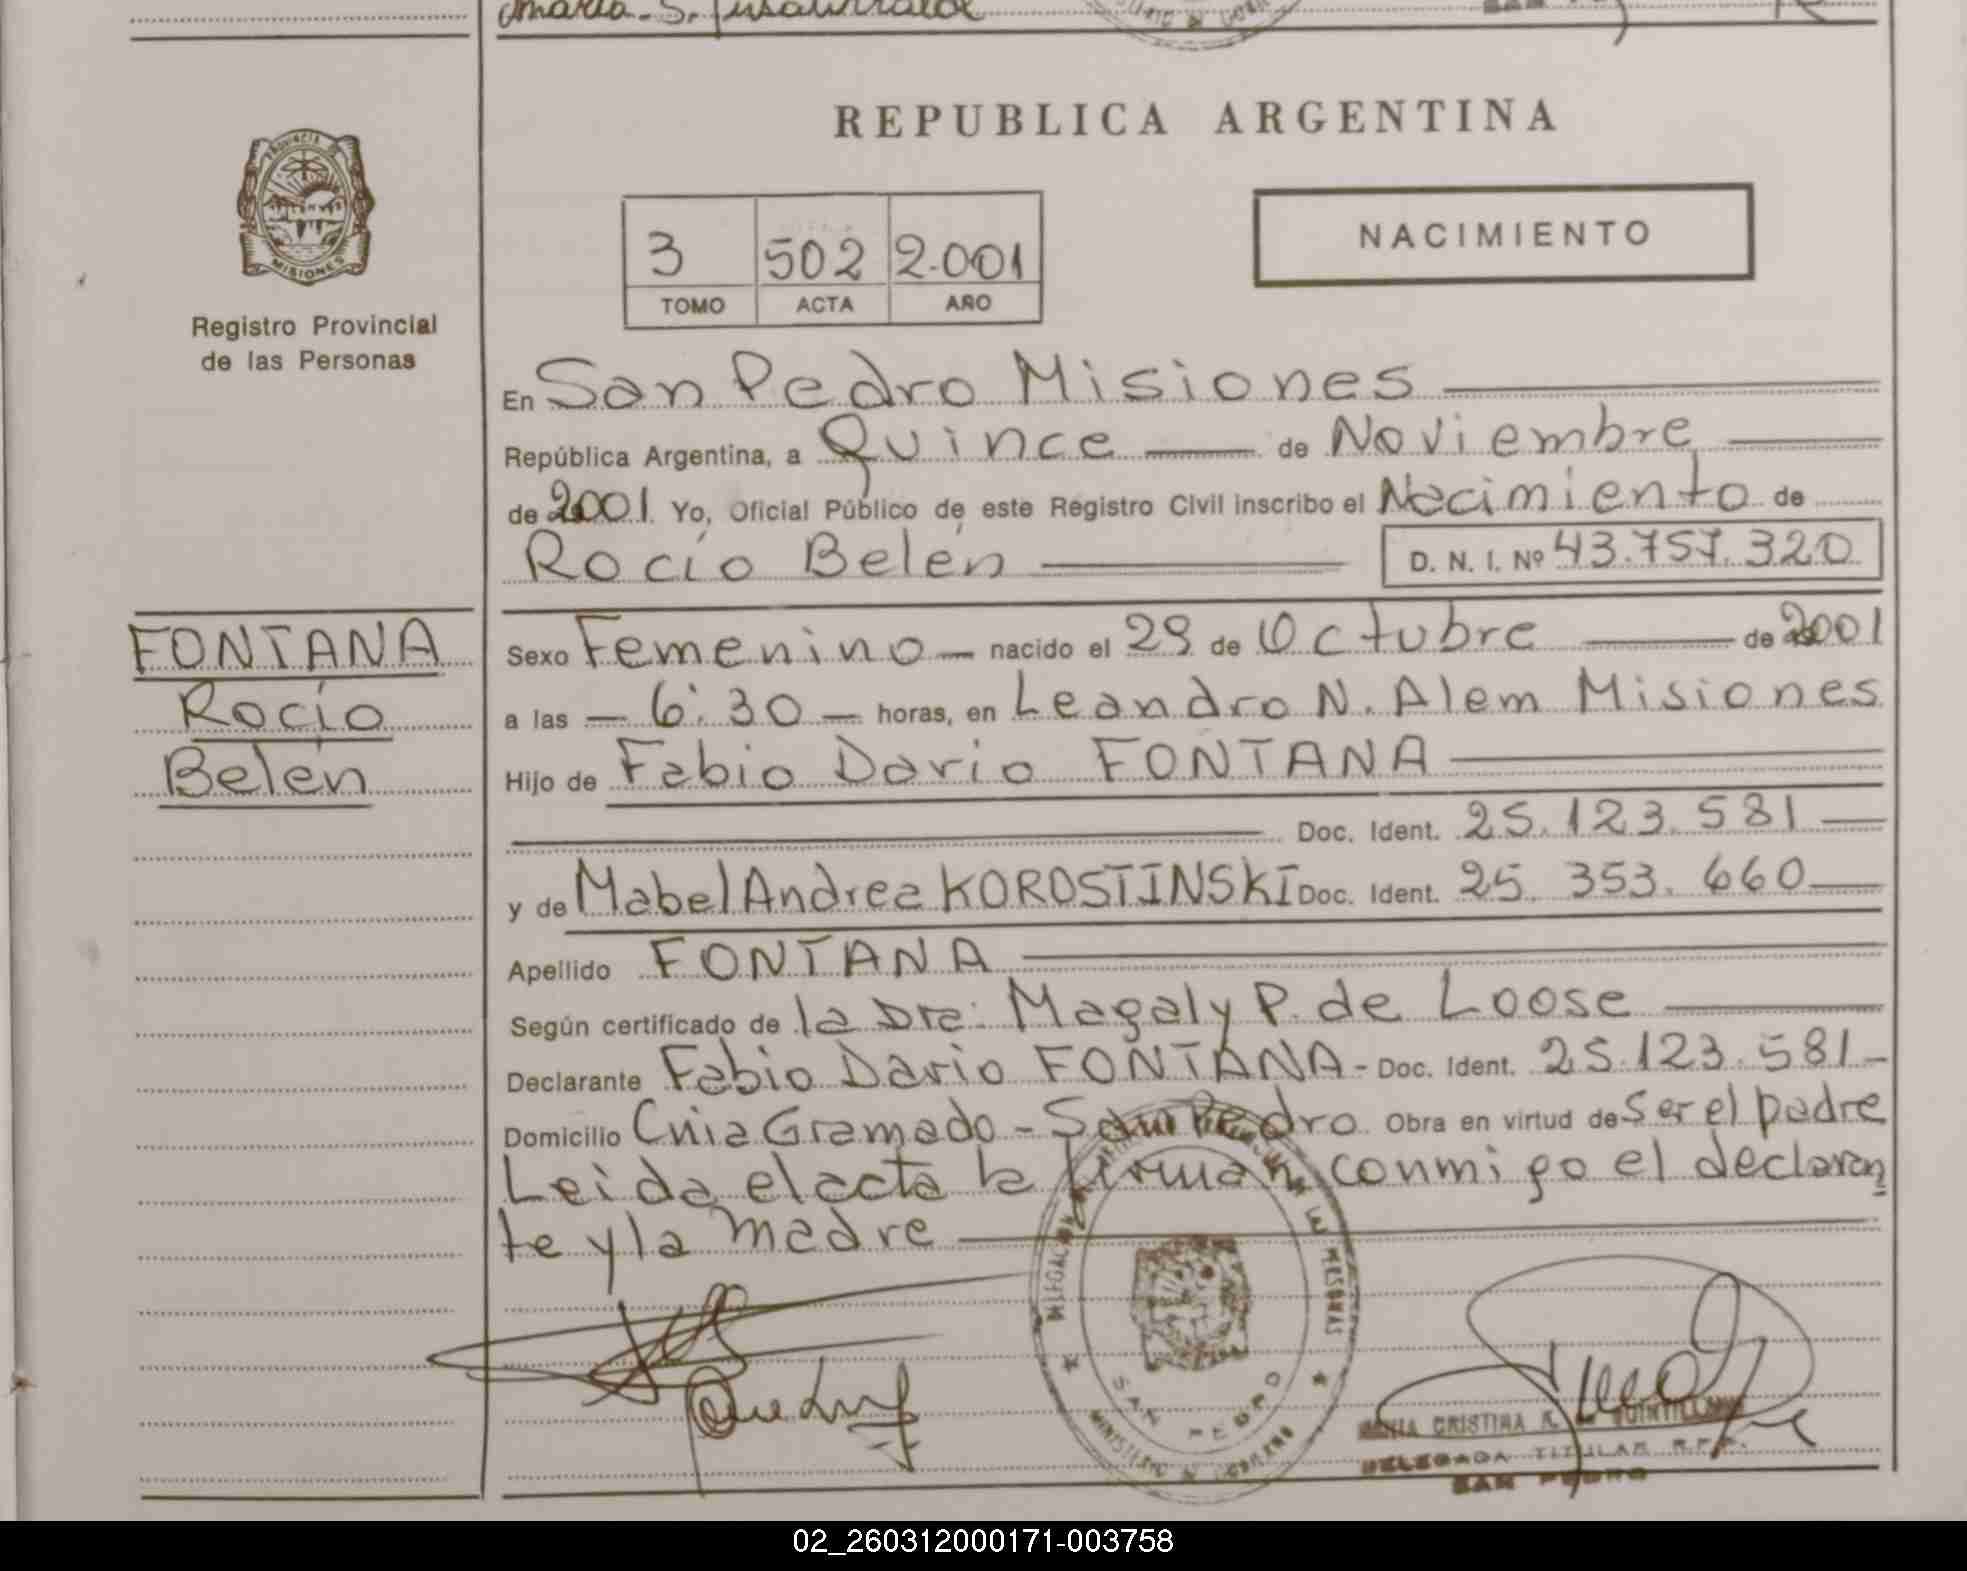 REPUBLICA ARGENTINA
PROVINCIA DE
MISIONES
Registro Provincial
de las Personas
3 502 2.001
TOMO ACTA AÑO
NACIMIENTO
En San Pedro Misiones
República Argentina, a Quince de Noviembre
de 2001 Yo, Oficial Público de este Registro Civil inscribo el Nacimiento de
Rocío Belén D. N. I. Nº 43.757.320
FONTANA
Rocío
Belén
Sexo Femenino nacido el 29 de Octubre de 2001
a las 6:30 horas, en Leandro N. Alem Misiones
Hijo de Fabio Dario FONTANA
Doc. Ident. 25.123.581
y de Mabel Andrea KOROSTINSKI Doc. Ident. 25.353.660
Apellido FONTANA
Según certificado de la Dra: Magaly P. de Loose
Declarante Fabio Dario FONTANA - Doc. Ident. 25.123.581
Domicilio Cnia Gramado - San Pedro Obra en virtud de Ser el padre
Leida el acta la firman conmigo el declaran
te y la madre
DELEGACION LAS PERSONAS
SAN PEDRO
MINISTERIO DE GOBIERNO
CRISTINA
DELEGADA TITULAR R.P.P.
SAN PEDRO
02_260312000171-003758